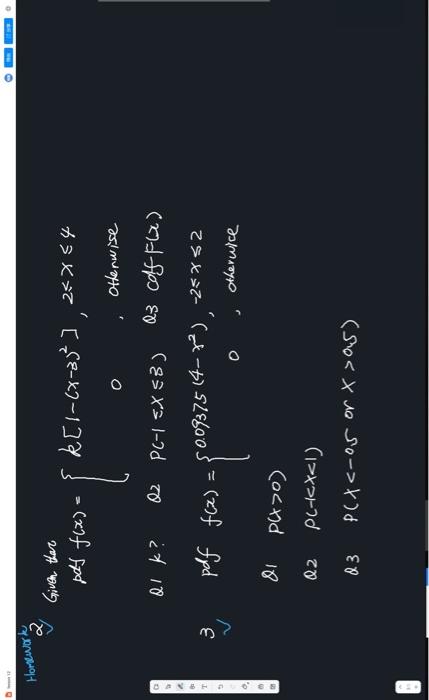 Homework
2 Given that
pdf f(x) = { k[1-(x-3)²] , 2≤x≤4
0 , otherwise
Q1 k? Q2 P(-1≤X≤3) Q3 cdf F(x)
3 pdf f(x) = { 0.09375(4-x²) , -2≤x≤2
0 , otherwise
Q1 P(x>0)
Q2 P(-1<x<1)
Q3 P(X<-0.5 or X>0.5)